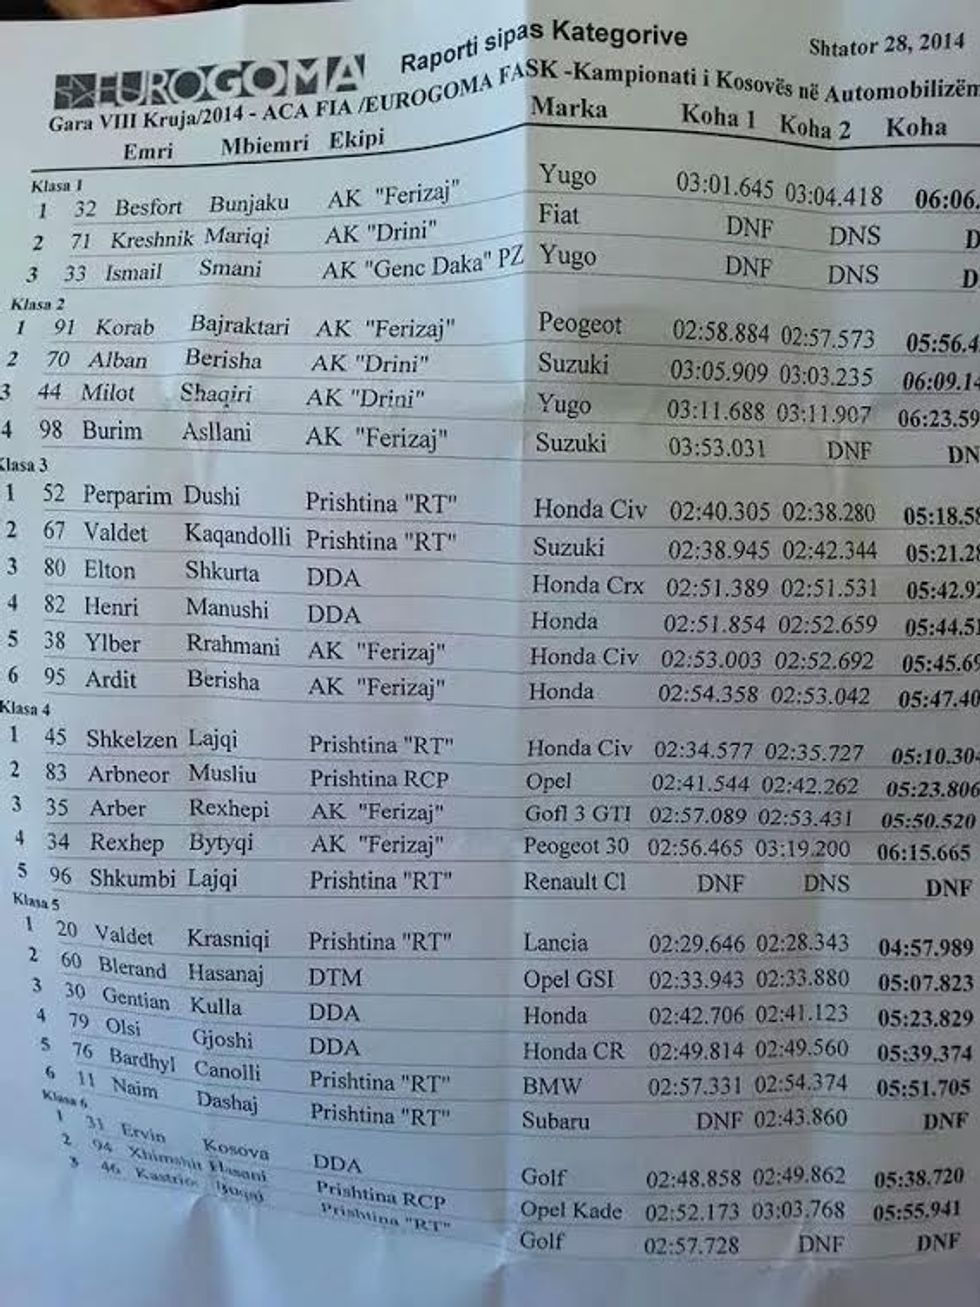 EUROGOMA Raporti sipas Kategorive Shtator 28, 2014
Gara VIII Kruja/2014 - ACA FIA /EUROGOMA FASK -Kampionati i Kosovës në Automobilizëm
Emri Mbiemri Ekipi Marka Koha 1 Koha 2 Koha
Klasa 1
1 32 Besfort Bunjaku AK "Ferizaj" Yugo 03:01.645 03:04.418 06:06.
2 71 Kreshnik Mariqi AK "Drini" Fiat DNF DNS D
3 33 Ismail Smani AK "Genc Daka" PZ Yugo DNF DNS D
Klasa 2
1 91 Korab Bajraktari AK "Ferizaj" Peogeot 02:58.884 02:57.573 05:56.4
2 70 Alban Berisha AK "Drini" Suzuki 03:05.909 03:03.235 06:09.14
3 44 Milot Shaqiri AK "Drini" Yugo 03:11.688 03:11.907 06:23.59
4 98 Burim Asllani AK "Ferizaj" Suzuki 03:53.031 DNF DN
Klasa 3
1 52 Perparim Dushi Prishtina "RT" Honda Civ 02:40.305 02:38.280 05:18.58
2 67 Valdet Kaqandolli Prishtina "RT" Suzuki 02:38.945 02:42.344 05:21.28
3 80 Elton Shkurta DDA Honda Crx 02:51.389 02:51.531 05:42.92
4 82 Henri Manushi DDA Honda 02:51.854 02:52.659 05:44.51
5 38 Ylber Rrahmani AK "Ferizaj" Honda Civ 02:53.003 02:52.692 05:45.69
6 95 Ardit Berisha AK "Ferizaj" Honda 02:54.358 02:53.042 05:47.40
Klasa 4
1 45 Shkelzen Lajqi Prishtina "RT" Honda Civ 02:34.577 02:35.727 05:10.304
2 83 Arbneor Musliu Prishtina RCP Opel 02:41.544 02:42.262 05:23.806
3 35 Arber Rexhepi AK "Ferizaj" Gofl 3 GTI 02:57.089 02:53.431 05:50.520
4 34 Rexhep Bytyqi AK "Ferizaj" Peogeot 30 02:56.465 03:19.200 06:15.665
5 96 Shkumbi Lajqi Prishtina "RT" Renault Cl DNF DNS DNF
Klasa 5
1 20 Valdet Krasniqi Prishtina "RT" Lancia 02:29.646 02:28.343 04:57.989
2 60 Blerand Hasanaj DTM Opel GSI 02:33.943 02:33.880 05:07.823
3 30 Gentian Kulla DDA Honda 02:42.706 02:41.123 05:23.829
4 79 Olsi Gjoshi DDA Honda CR 02:49.814 02:49.560 05:39.374
5 76 Bardhyl Canolli Prishtina "RT" BMW 02:57.331 02:54.374 05:51.705
6 11 Naim Dashaj Prishtina "RT" Subaru DNF 02:43.860 DNF
Klasa 6
1 31 Ervin Kosova DDA Golf 02:48.858 02:49.862 05:38.720
2 94 Xhimshit Hasani Prishtina RCP Opel Kade 02:52.173 03:03.768 05:55.941
3 46 Prishtina "RT" Golf 02:57.728 DNF DNF